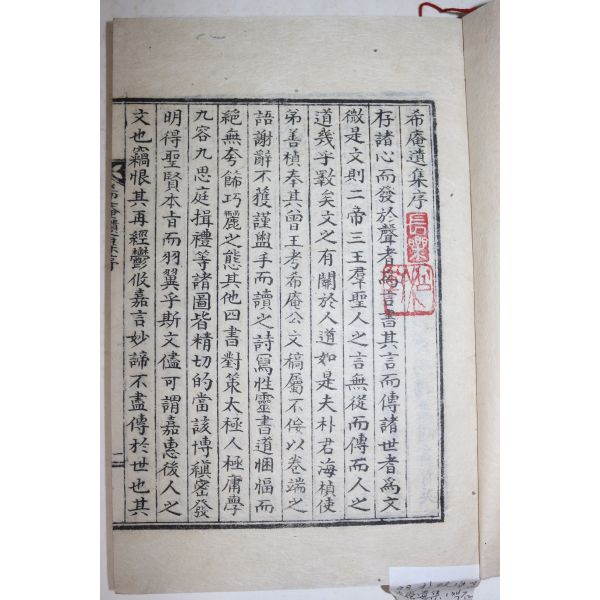 希庵遺集序
存諸心而發於聲者爲言書其言而傳諸世者爲文
微是文則二帝三王羣聖人之言無從而傳而人之
道幾乎斁矣文之有關於人道如是夫朴君海楨使
弟善楨奉其曾王考希庵公文稿屬不佞以卷端之
語謝辭不獲謹盥手而讀之詩寫性靈書道悃愊而
絕無夸餙巧麗之態其他四書對策太極人極庸學
九容九思庭揖禮等諸圖皆精切的當該博縝密發
明得聖賢本旨而羽翼乎斯文儘可謂嘉惠後人之
文也竊恨其再經鬱攸嘉言妙諦不盡傳於世也其
長樂